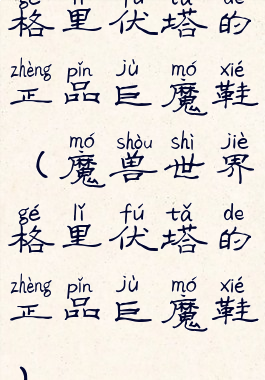 gé lǐ fú tǎ de
格里伏塔的
zhèng pǐn jù mó xié
正品巨魔鞋
mó shòu shì jiè
（魔兽世界
gé lǐ fú tǎ de
格里伏塔的
zhèng pǐn jù mó xié
正品巨魔鞋
）